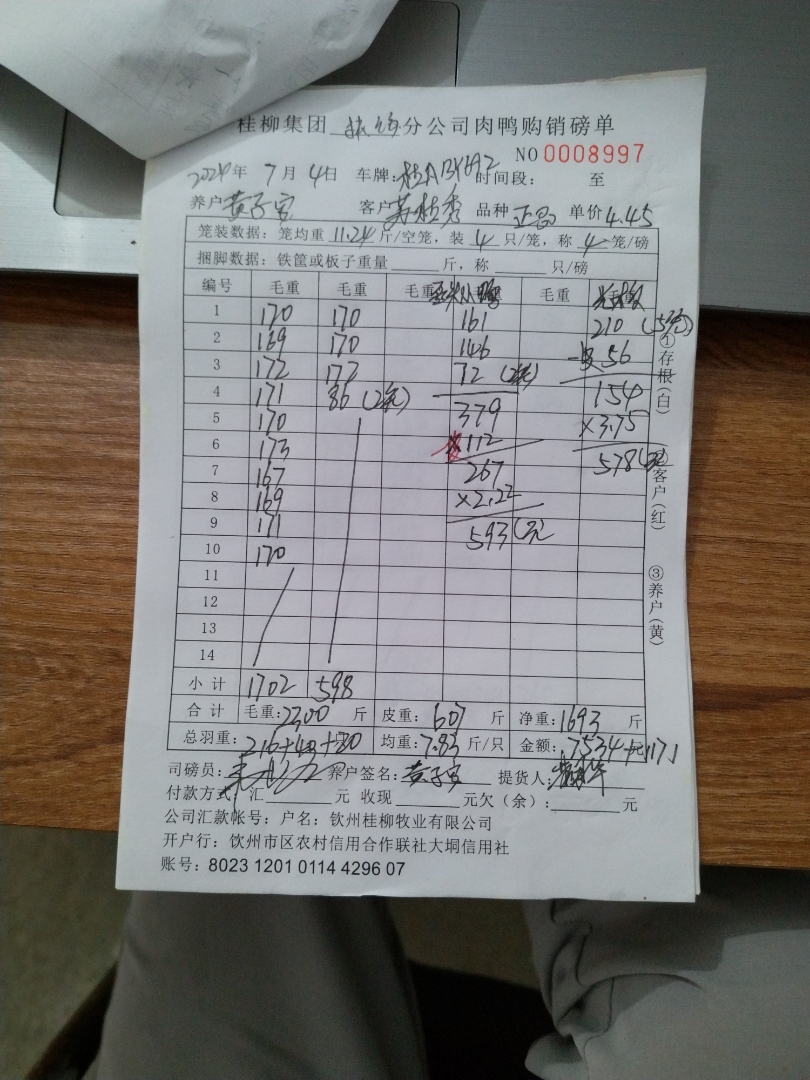 桂柳集团 分公司肉鸭购销磅单
NO 0008997
2024年 7月 4日 车牌: 时间段: 至
养户 黄子官 客户 品种 正品 单价 4.45
笼装数据: 笼均重 11.24 斤/空笼, 装 4 只/笼, 称 4 笼/磅
捆脚数据: 铁筐或板子重量 斤, 称 只/磅
编号 毛重 毛重 毛重 毛重
1 170 170 161 210 (5笼)
2 169 170 146 -56
3 172 172 72 (2笼) 154
4 171 86 (2笼) 379 ×3.75
5 170 112 578 (元)
6 173 267
7 167 ×2.22
8 169 593 (元)
9 171
10 170
11
12
13
14
小计 1702 598
合计 毛重: 2300 斤 皮重: 607 斤 净重: 1693 斤
总羽重: 216+40+20 均重: 7.83 斤/只 金额: 7534 元
司磅员: 养户签名: 黄子官 提货人:
付款方式: 汇 元 收现 元欠(余): 元
公司汇款帐号: 户名: 钦州桂柳牧业有限公司
开户行: 钦州市区农村信用合作联社大垌信用社
账号: 8023 1201 0114 4296 07
①存根(白)
②客户(红)
③养户(黄)